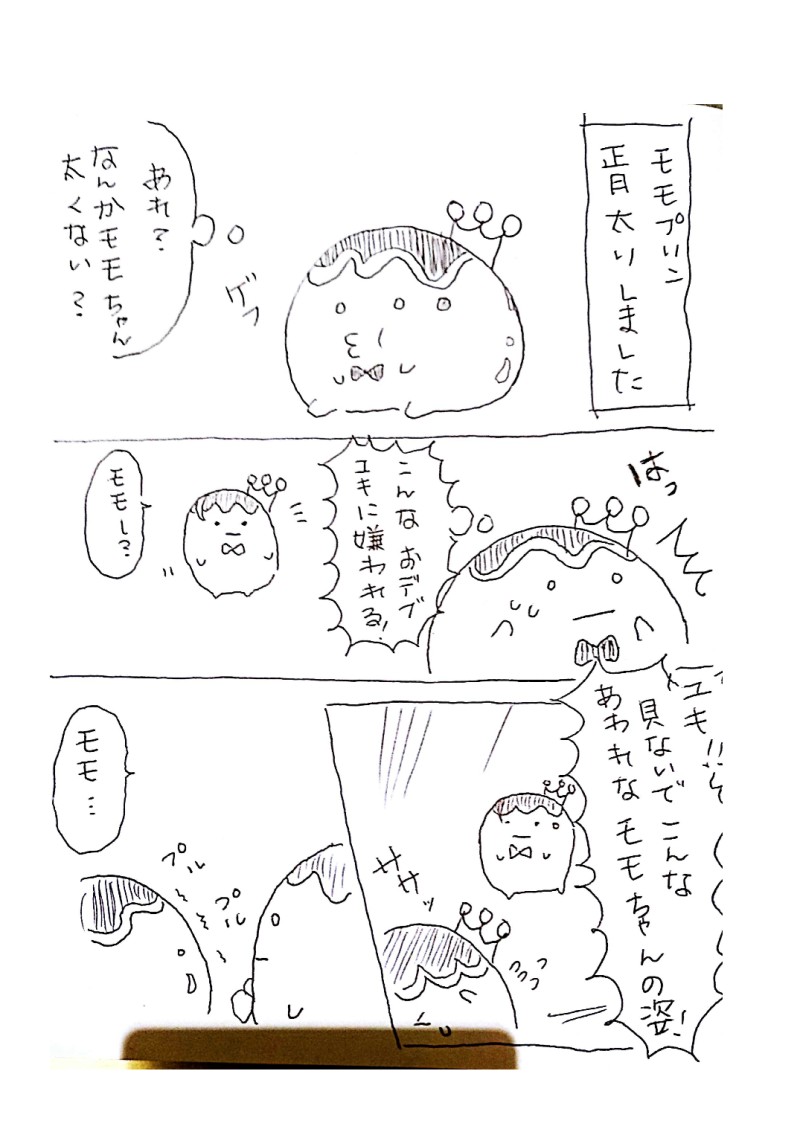 モモプリン
正月太りしました
ゲフ
あれ?
なんかモモちゃん
太くない?
はっ
こんなおデブ
ユキに嫌われる!
モモー?
ユキ!!
見ないでこんな
あわれなモモちゃんの姿!
ササッ
モモ…
プル
プル